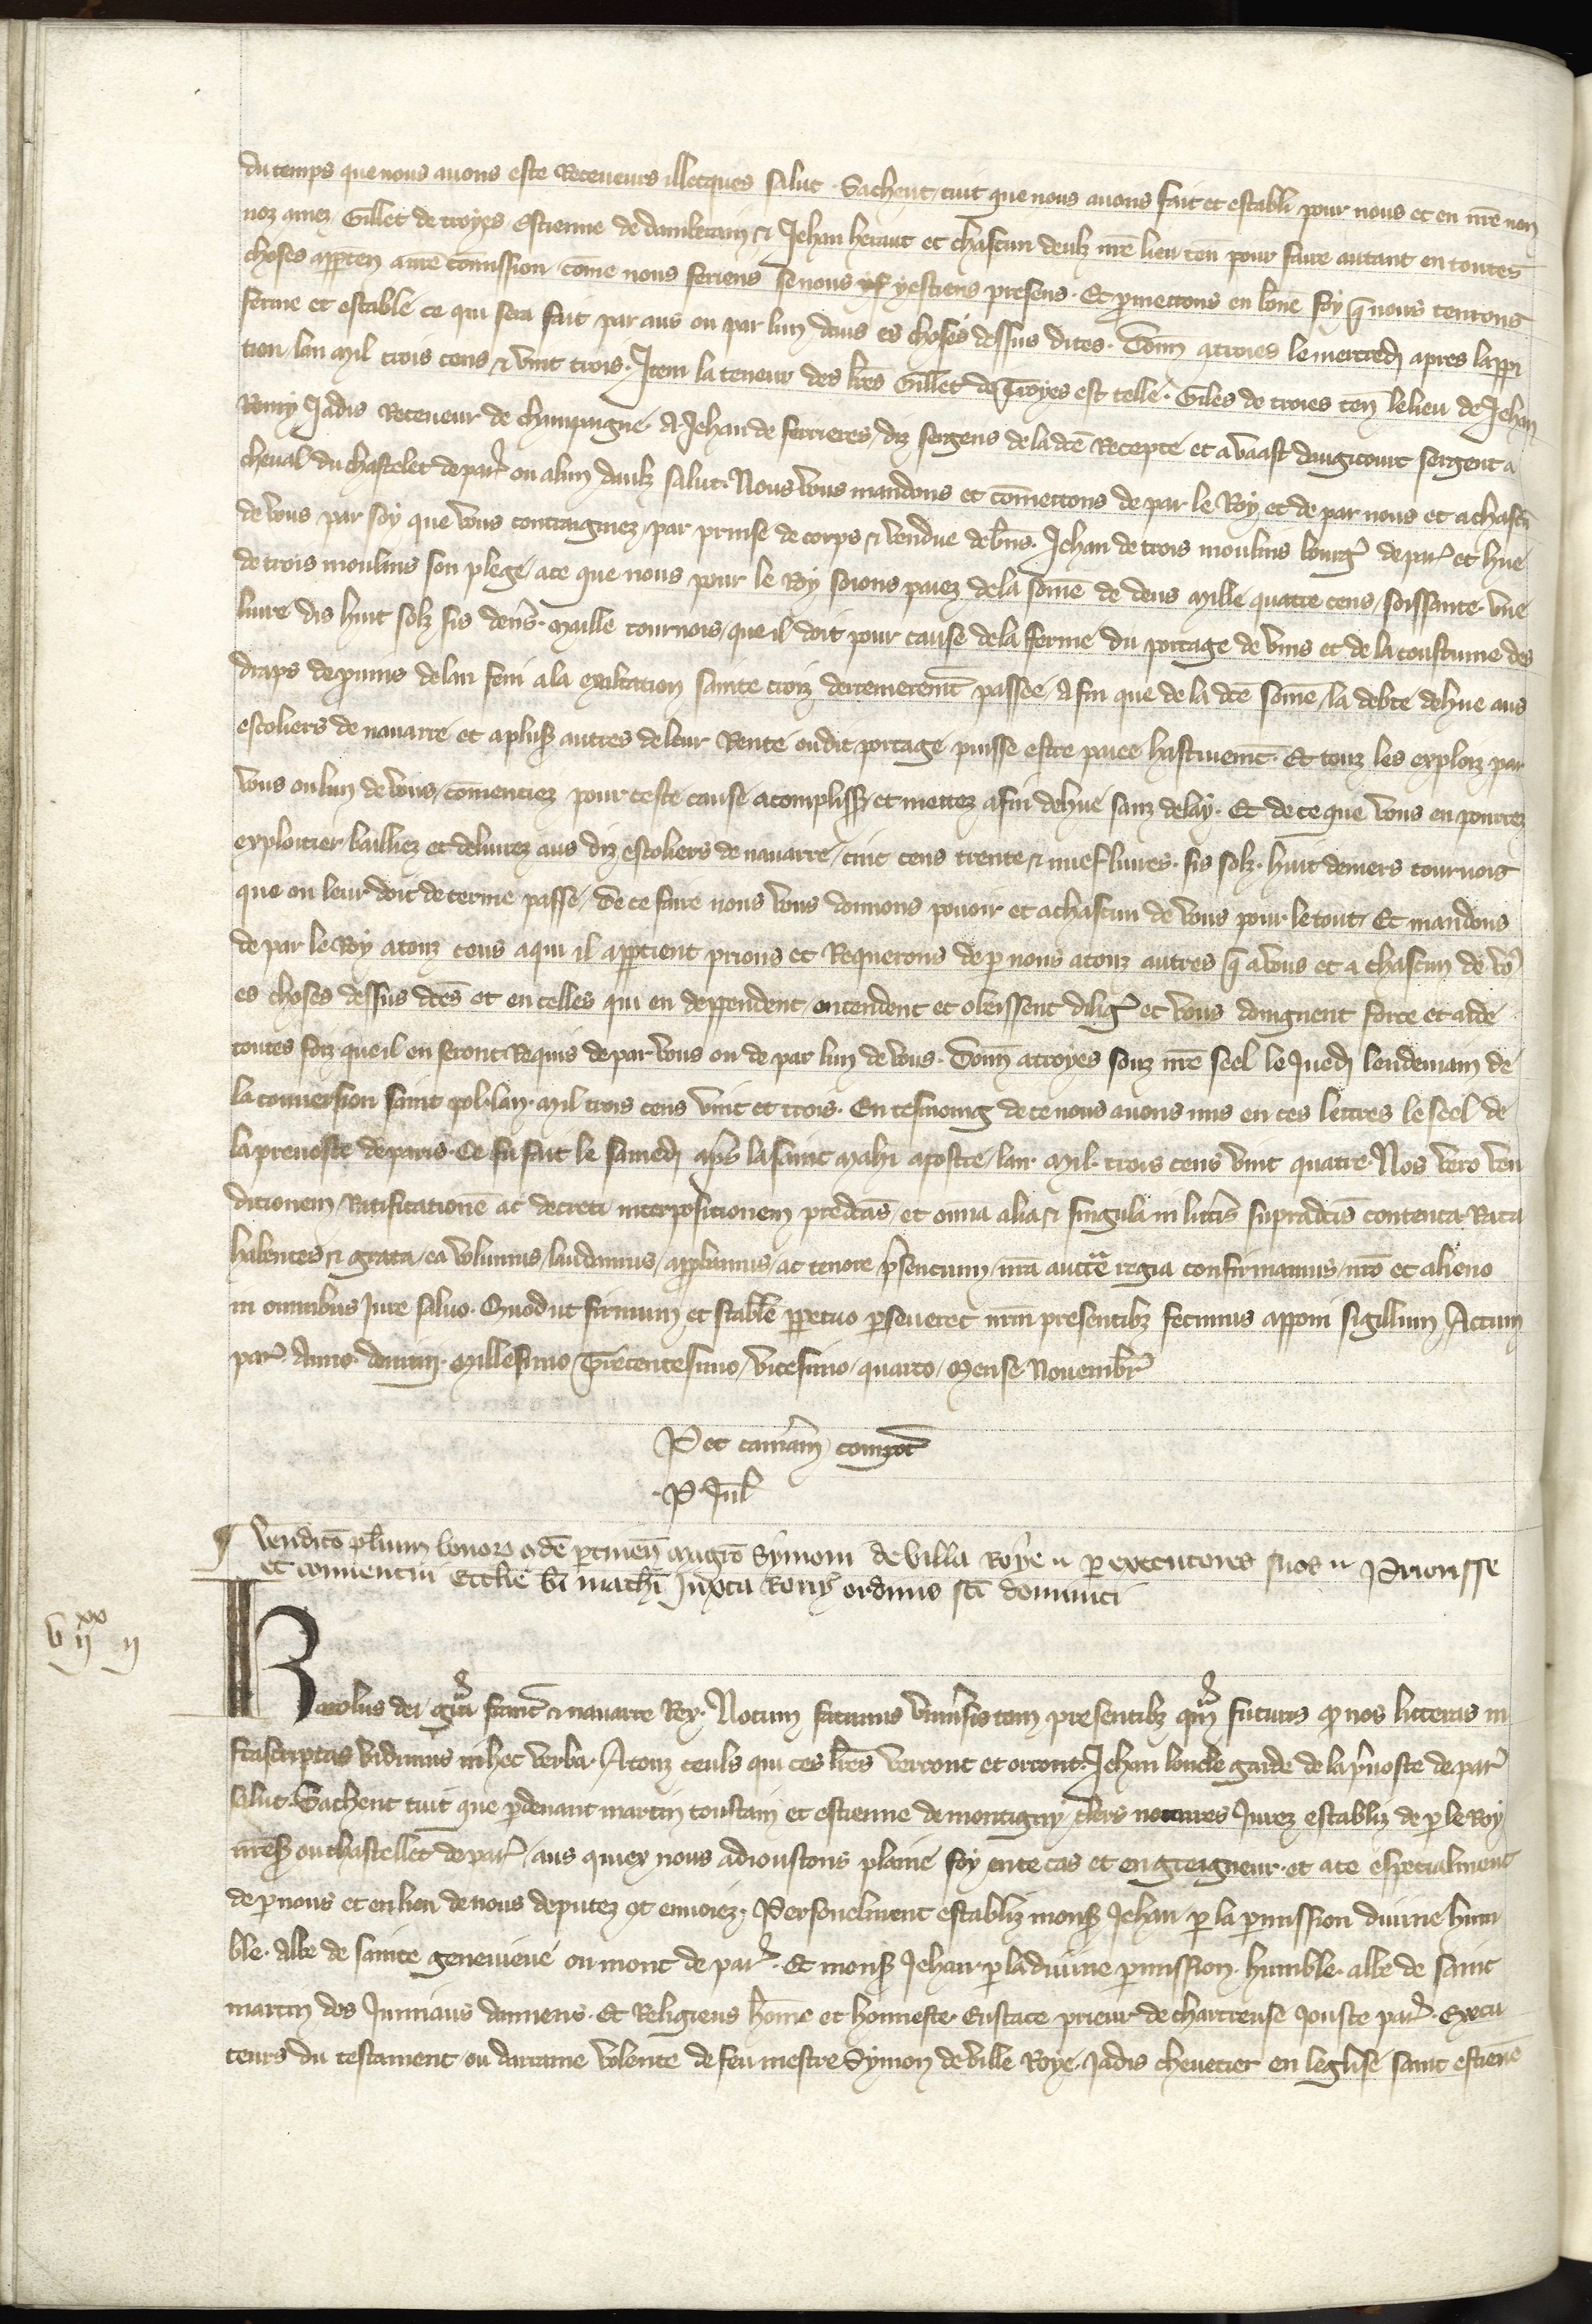 du temps que nous auons este Receueurs illecques salut. Sachent tuit que nous auons fait et establi pour nous et en nr̄e non
noz amez Gillet de troyes Estienne de dambetain ⁊ Jehan heraut et chascun deulz nr̄e lieu ten̄ pour faire autant en toutes
choses apparten̄ a nr̄e com̄ission com̄e nous feriens se nous yestiens presens. Et ꝓmettons en bōne foy q̄ nous tenrons
ferme et estable ce qui sera fait par aus ou par lun daus es choses dessus dites. Donn̄ a troies le mercredj apres lappari
tion lan mil trois cens ⁊ vint trois. Item la teneur des lr̄es Gillet de Troyes est telle. Giles de troies ten̄ le lieu de Jehan
Remy Jadis Receueur de champaigne A Jehan de ferrieres / diz sergens de la dc̄e Recepte et a vaast daugicourt sergent a
cheual du chastelet de par̄ ou a lun daulz salut. Nous vous mandons et com̄ettons de par le Roy et de par nous et a chascū
de vous par soy que vous contraigniez / par prinse de corps ⁊ vendue de bn̄s. Jehan de trois moulins bourg̾ de par̾ et hue
de trois moulins son plege / a ce que nous pour le Roy soions paiez de la som̄e de deus mille quatre cens / soissante. vne
liure dis huit solz sis den̄s. maille tournois / que il doit pour cause de la ferme du portage de vins et de la coustume des
draps de prunis de lan feni a la exaltation sainte croiz derrenierem̄t passee / Afin que de la dc̄e som̄e / la debte dehue aus
escoliers de nauarre et a plus̾ autres de leur Rente oudit portage puisse estre paiee hastiuem̄t. Et touz les exploiz par
vous ou lun de vous / com̄enciez pour ceste cause acompliss̾ et mettez a fin dehue sanz delay. Et de ce que vous en pourrez
exploitier bailliez et deliurez aus diz escoliers de nauarre / cinc cens trente ⁊ nuef liures. sis solz. huit deniers tournois
que on leur doit de terme passe / De ce faire nous vous donnons pouoir et a chascun de vous pour le tout / Et mandons
de par le Roy a touz ceus a qui il appartient prions et Requerons de ꝑ nous a touz autres q̄ a vous et a chascun de vo᷒
es choses dessus dc̄es et en celles qui en deppendent / entendent et obeissent dilig̾ et vous doingnent force et aide
toutes foiz que il en seront Requis de par vous ou de par lun de vous. Donn̄ a troyes souz nr̄e seel le Juedj lendemain de
la conuersion saint pol. lan. mil trois cens vint et trois. En tesmoing de ce nous auons mis en ces lettres le seel de
la preuoste de paris. Ce fu fait le samedj apr̄s la saint mah̄i apostre / lan mil. trois cens vint quatre. Nos vero ven
ditionem / Ratificationē ac decreti interpositionem predc̄as / et om̄ia alia ⁊ singula in litt̄is supradc̄is contenta Rata
habentes ⁊ grata / ea volumus / laudamus / approbamus / ac tenore p̄sencium / nr̄a auctᵗᵉ regia confirmamus / nr̄o et alieno
in omnibus Jure saluo. Quod ut firmum et stabile ꝑpetuo ꝑseueret nr̄m presentibꝫ fecimus apponi sigillum Actum
par̾ Anno. domini. Millesimo / Trecentesimo / vicesimo / quarto / Mense Nouembr̾
P et cam̄am compot̾
. P. Jul̄
¶ venditō pl̄ium bonorꝫ qd̄ē ꝑtinen̄ magr̄o Symoni de villa Roye .. ꝑ executores suos .. Priorisse
et conuentui Eccl̄ie bī math̄i Juxta Roth̾ ordinis sc̄i dominici
vijxx ij
Karolus dei grā franc̾ ⁊ nauarre Rex. Notum facimus vniu᷒sis tam presentibꝫ qᵃm futuris ꝙ nos litteras in
frascriptas vidimus in hec verba. A touz ceuls qui ces lr̄es verront et orront. Jehan loncle garde de la p̄uoste de par̾
Salut. Sachent tuit que ꝑ deuant martin toustain et estienne de montigny / clers notaires Jurez establiz de ꝑ le Roy
nr̄es̾ ou chastellet de par̾ / aus quiex nous adioustons plaine foy en ce cas et en greigneur. et a ce especialment
de ꝑ nous et en lieu de nous deputez et enuoiez. Personelment establiz mons̾ Jehan ꝑ la ꝑmission diuine hum
ble. Abbe de sainte geneuieue ou mont de par̾. Et mons̾ Jehan ꝑ la diuine ꝑmission humble. abbe de saint
martin des Jumiaus damiens. Et Religieus hōme et honneste Eustace prieur de chartreuse Jouste par̾. Execu
teurs du testament / ou darraine volente de feu mestre Symon de ville Roye. Jadis cheuecier en leglise saint estiene